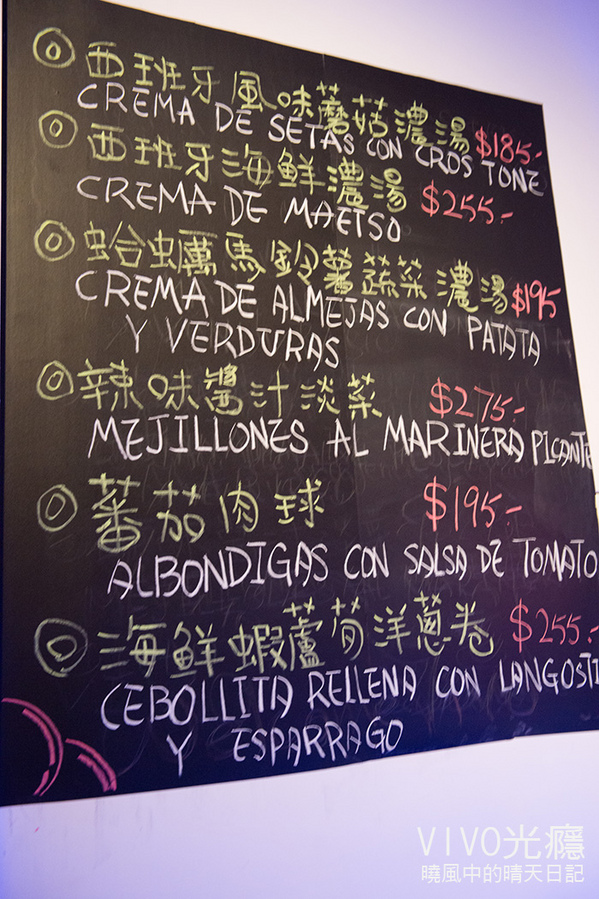 西班牙風味蘑菇濃湯 $185.-
CREMA DE SETAS CON CROS TONE
西班牙海鮮濃湯 $255.-
CREMA DE MAETSO
蛤蠣馬鈴薯蔬菜濃湯 $195
CREMA DE ALMEJAS CON PATATA
Y VERDURAS
辣味醬汁淡菜 $275.-
MEJILLONES AL MARINERA PICANTE
蕃茄肉球 $195.-
ALBONDIGAS CON SALSA DE TOMATO
海鮮蝦蘆筍洋蔥卷 $255.-
CEBOLLITA RELLENA CON LANGOSTI
Y ESPARRAGO
VIVO光癮
曉風中的晴天日記